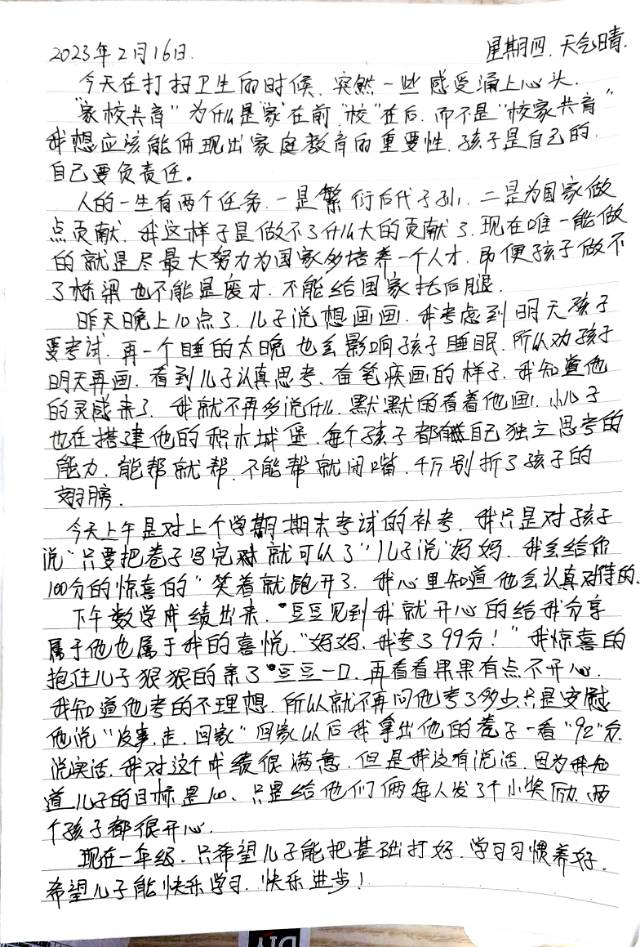 2023年2月16日. 星期四. 天气晴.
今天在打扫卫生的时候, 突然一些感受涌上心头.
"家校共育"为什么是"家"在前"校"在后, 而不是"校家共育"
我想应该能体现出家庭教育的重要性, 孩子是自己的,
自己要负责任。
人的一生有两个任务, 一是繁衍后代子孙, 二是为国家做
点贡献, 我这样子是做不了什么大的贡献了, 现在唯一能做
的就是尽最大努力为国家多培养一个人才, 即便孩子做不
了栋梁也不能是废才, 不能给国家托后腿.
昨天晚上10点了, 儿子说想画画, 我考虑到明天孩子
要考试, 再一个睡的太晚也会影响孩子睡眠, 所以劝孩子
明天再画, 看到儿子认真思考, 奋笔疾画的样子, 我知道他
的灵感来了, 我就不再多说什么, 默默的看着他画, 小儿子
也在搭建他的积木城堡, 每个孩子都有自己独立思考的
能力, 能帮就帮, 不能帮就闭嘴, 千万别折了孩子的
翅膀.
今天上午是对上个学期期末考试的补考, 我只是对孩子
说"只要把卷子写完就可以了"儿子说"妈妈, 我会给你
100分的惊喜的"笑着就跑开了, 我心里知道他会认真对待的.
下午数学成绩出来, 豆豆见到我就开心的给我分享
属于他也属于我的喜悦, "妈妈, 我考了99分!" 我惊喜的
抱住儿子狠狠的亲了豆豆一口, 再看看果果有点不开心,
我知道他考的不理想, 所以就不再问他考了多少, 只是安慰
他说"没事, 走, 回家"回家以后我拿出他的卷子一看"92"分,
说实话, 我对这个成绩很满意, 但是我没有说话, 因为我知
道儿子的目标是100, 只是给他们俩每人发了个小奖励, 两
个孩子都很开心.
现在一年级, 只希望儿子能把基础打好, 学习习惯养好,
希望儿子能快乐学习, 快乐进步!
DIY